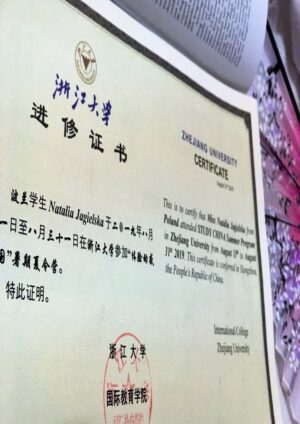 浙江大学
进修证书
波兰学生 Natalia Jagielska 于二〇一九年八月
一日至八月三十一日在浙江大学参加“体验动感
国”暑期夏令营。
特此证明。
浙江大学
国际教育学院
ZHEJIANG UNIVERSITY
CERTIFICATE
This is to certify that Miss Natalia Jagielska from
Poland attended STUDY CHINA Summer Program
in Zhejiang University from August to August
31st 2019. This certificate is conferred in Hangzhou,
the People's Republic of China.
International College
Zhejiang University